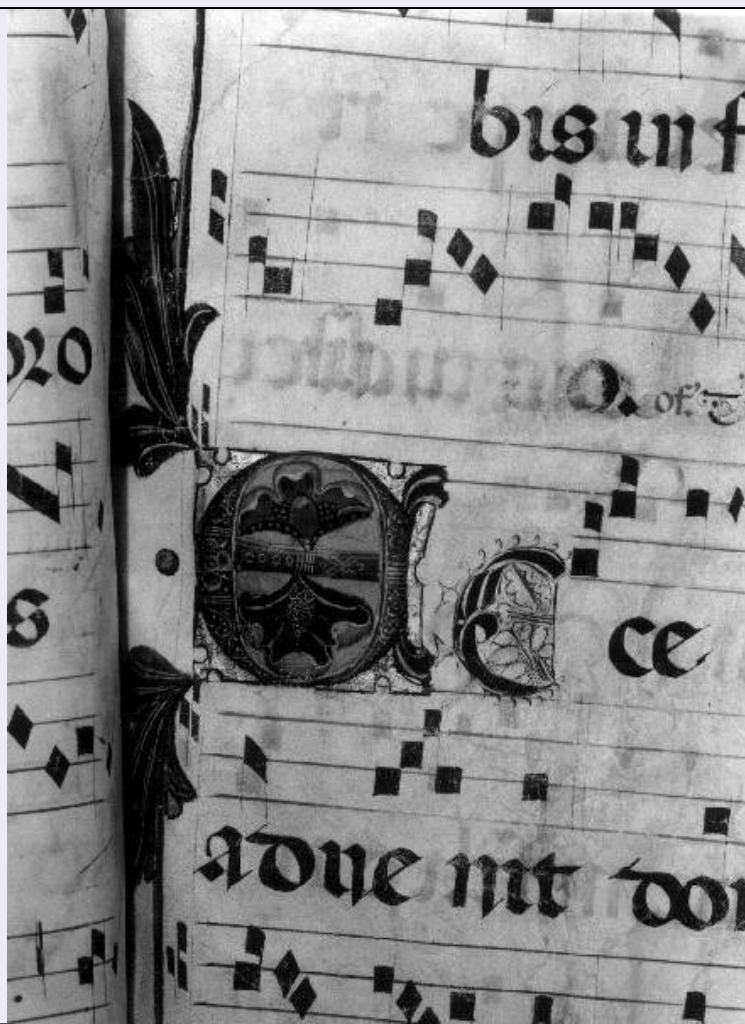 bis in f
oro
of.
E C ce
s
adue nit do